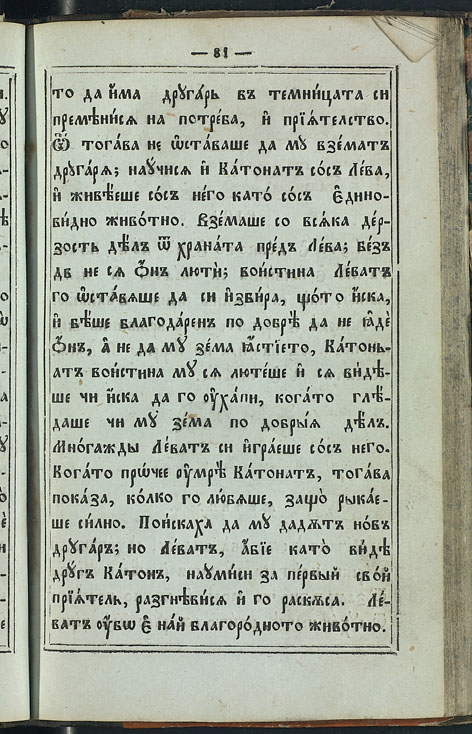 — 81 —
то да и҆́ма дрꙋга́рь въ темни́цата си
премѣни́сѧ на потре́ба, и҆ прїѧ́телство.
Ѿ тога́ва не ѡ҆ста́ваше да мꙋ взе́матъ
дрꙋга́рѧ; наꙋчи́сѧ и҆ Ка́тонатъ со́съ Ле́ва,
и҆ живѣ́еше со́съ не́го като́ со́съ Є҆дино-
ви́дно живо́тно. Взе́маше со всѧ́ка де́р-
зость дѣ́лъ ѿ храна́та пре́дъ Ле́ва; бе́зъ
да не сѧ Ѻ҆́нъ лю́ти; вои́стина Ле́ватъ
го ѡ҆ста́вѧше да си и҆зби́ра, що́то и҆́ска,
и҆ бѣ́ше благода́ренъ по добрѣ̀ да не ꙗ҆дѐ
Ѻ҆́нъ, а҆̀ не да мꙋ зе́ма ꙗ҆́стїето, Ка́тонь-
атъ вои́стина мꙋ сѧ лю́теше и҆ сѧ ви́дѣ-
ше чи и҆́ска да го ᲂу҆ха́пи, кога́то глѣ́-
даше чи мꙋ зе́ма по добры́ѧ дѣ́лъ.
Мно́гажды Ле́ватъ си и҆гра́еше со́съ него.
Кога́то прѡ́чее ᲂу҆мрѣ̀ Ка́тонатъ, тога́ва
пока́за, ко́лко го лю́бѧше, защо̀ рыка́е-
ше си́лно. Пои́скаха да мꙋ дадѫ́тъ но́въ
дрꙋга́ръ; но Ле́ватъ, а҆́бїе като̀ ви́дѣ
дрꙋ́гъ Ка́тонъ, наꙋми́си за пе́рвый сво́й
прїѧ́тель, разгнѣви́сѧ и҆ го раскъ́са. Ле́-
ватъ ᲂу҆́бѡ є҆̀ на́й благоро́дното живо́тно.